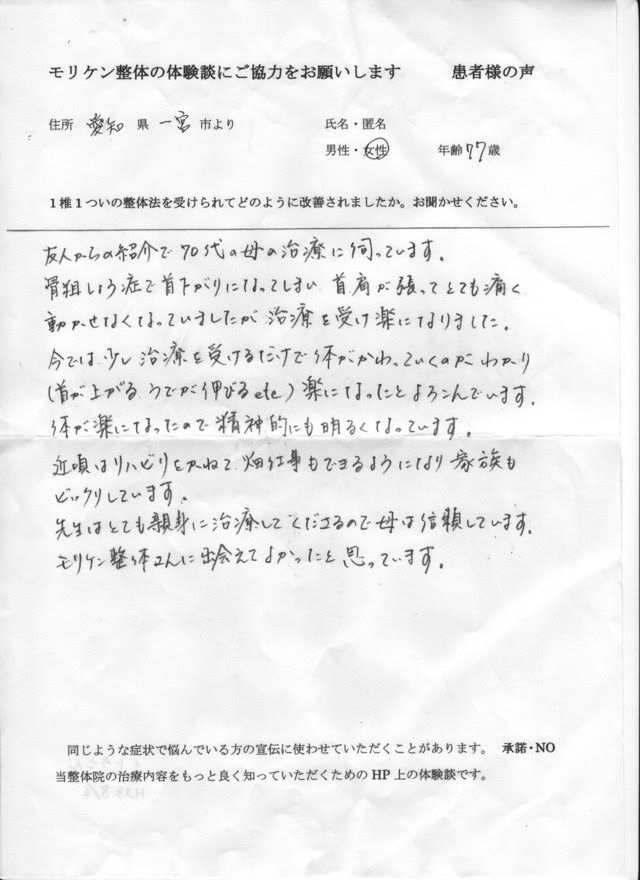 モリケン整体の体験談にご協力をお願いします　患者様の声
住所 愛知 県 一宮 市より　氏名・匿名
男性・女性　年齢 77 歳
1椎1ついの整体法を受けられてどのように改善されましたか。お聞かせください。
友人からの紹介で70代の母の治療に伺っています。
骨粗しょう症で首下がりになってしまい 首肩が張ってとても痛く
動かせなくなっていましたが 治療を受け楽になりました。
今では少し治療を受けるだけで体がかわっていくのがわかり
(首が上がる うでが伸びるetc) 楽になったとよろこんでいます。
体が楽になったので精神的にも明るくなっています。
近頃はリハビリをかねて 畑仕事もできるようになり 家族も
ビックリしています。
先生はとても親身に治療してくださるので母は信頼しています。
モリケン整体さんに出会えてよかったと思っています。
同じような症状で悩んでいる方の宣伝に使わせていただくことがあります。 承諾・NO
当整体院の治療内容をもっと良く知っていただくための HP 上の体験談です。